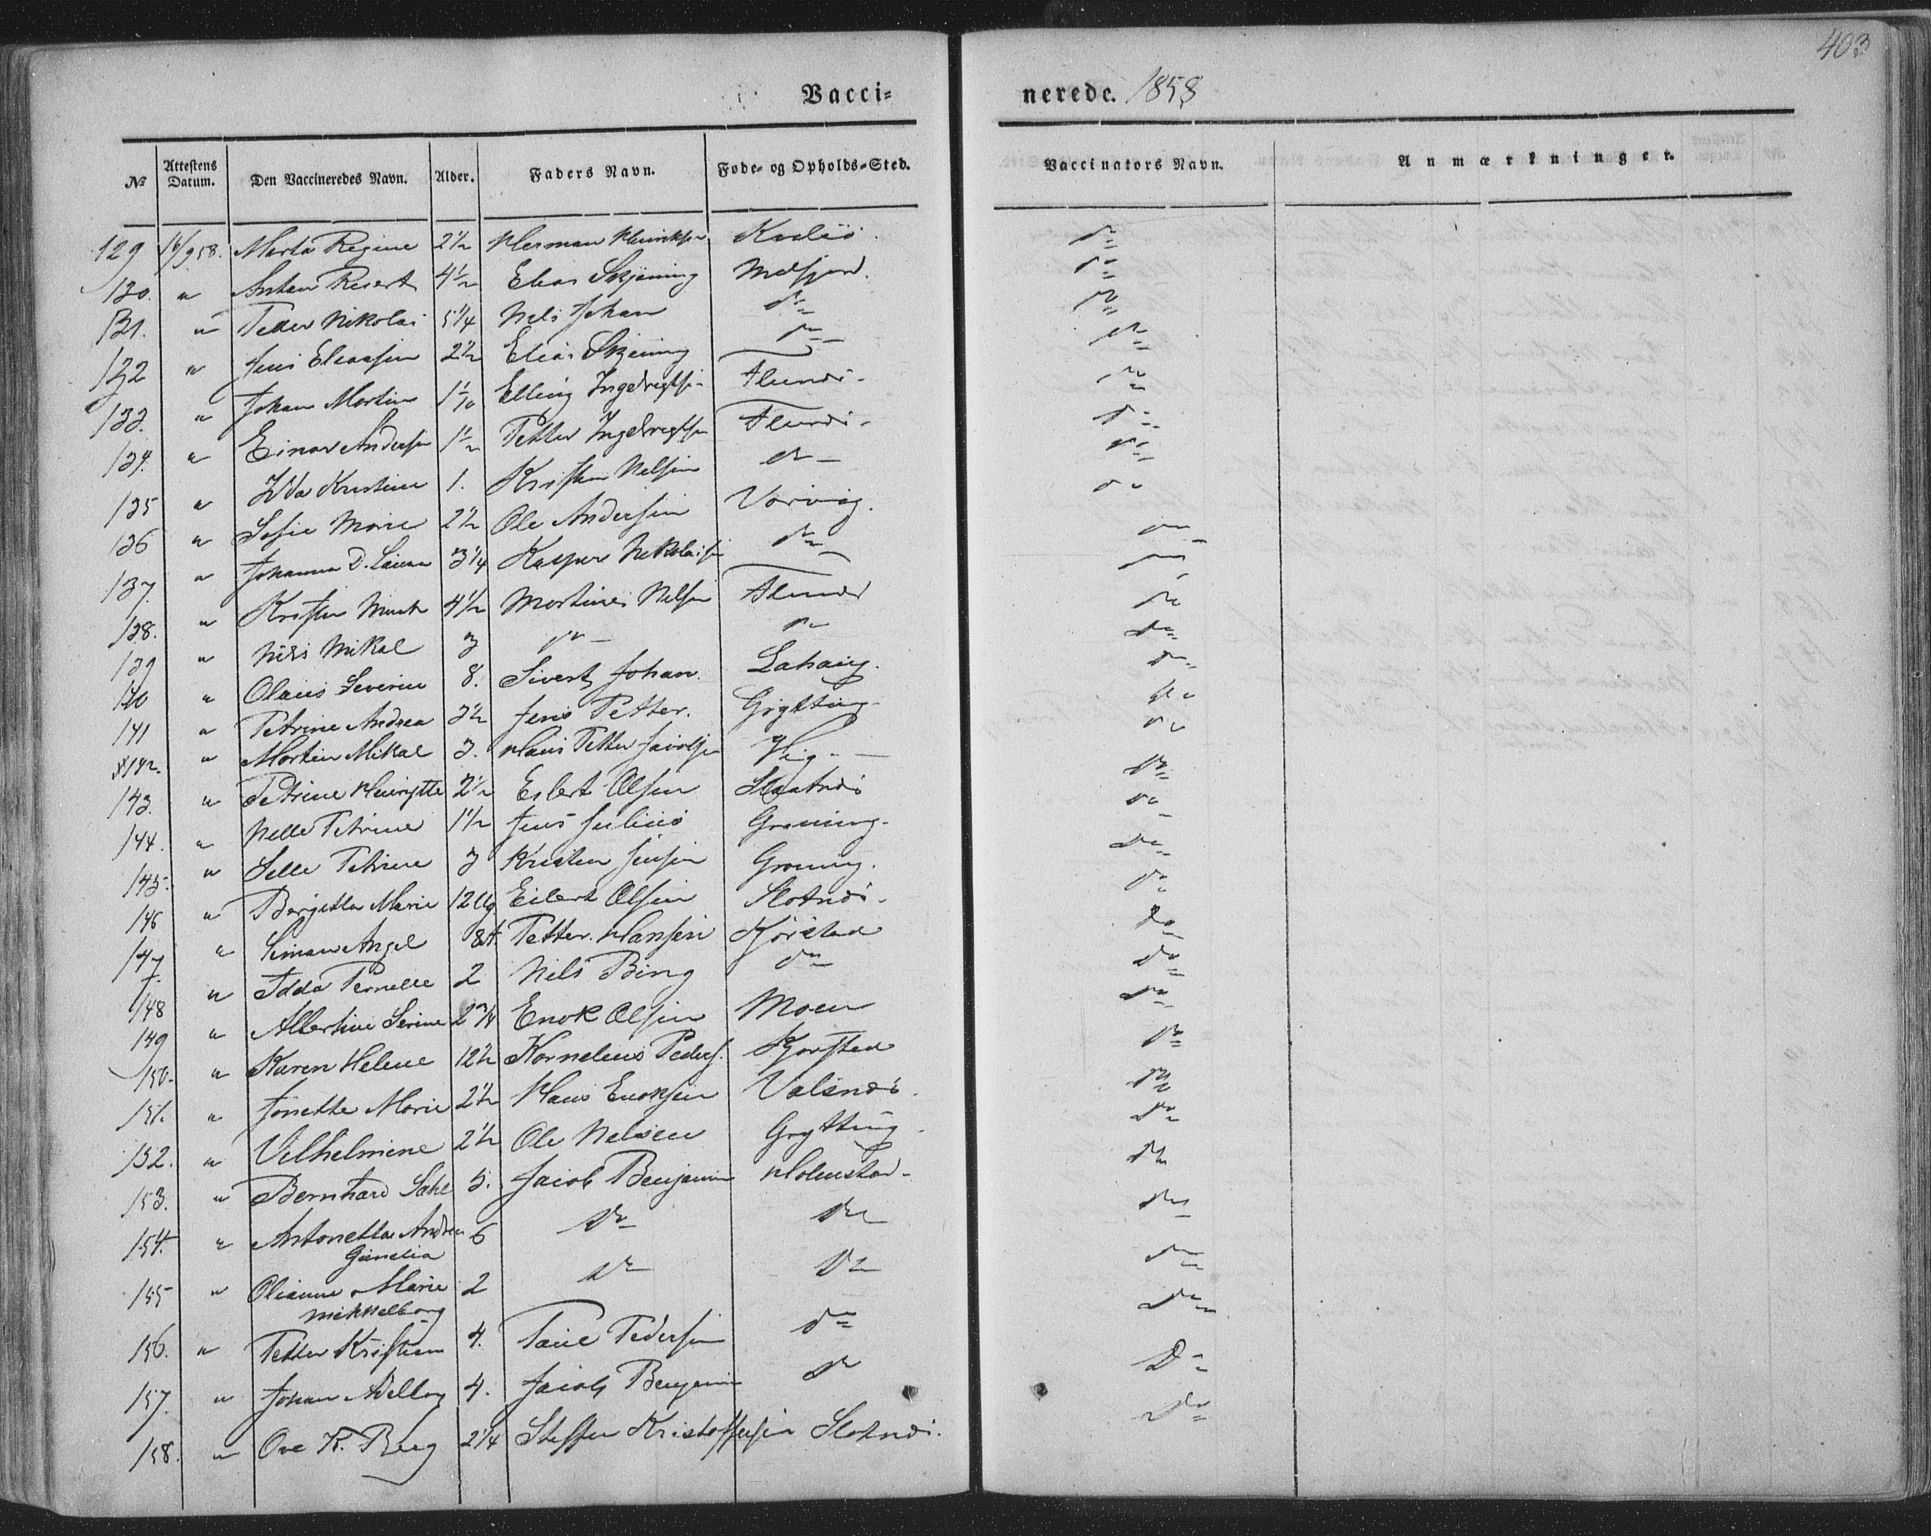 403
Vaccinerede. 1858
No Attestens Datum. Den Vaccineredes Navn. Alder. Faders Navn. Føde- og Opholds-Sted. Vaccinators Navn. Anmærkninger.
129 16/9 58. Marta Regine 2 1/2 Herman Henriksen do
130. " Anton Resert 4 1/2 Elias Skjæning Melfjord. do
131. " Peder Nikolai 5 1/4 Nils Johan do do
132 " Jens Eliassen 2 1/2 Elias Skjæning do do
133. " Johan Martin 1 1/10 Elling Ingebrigtsen do
134. " Einar Andersen 1 1/2 Petter Ingebrigtsen do
135 " Ida Kristine 1. Kristen Nilsen do do
136 " Sofie Marie 2 1/2 Ole Andersen do
137. " Johanna D. 3 1/4 Kasper Nikolaisen do do
138. " Kristen Munk 4 1/2 Martines Nilsen do
139 " Nils Mikal 3 do do do
140 " Olaus Severin 8. Sivert Johan. do
141 " Petrine Andrea 3 1/2 Jens Petter. Grytting do
142. " Morten Mikal 3. Hans Petter do
143. " Petrine Henrijtte 2 1/2 Eilert Olsen do
144. " Nelle Petrine 1 1/2 Jens Julius Groning. do
145. " Selle Petrine 3 Kristen Jensen Groning. do
146 " Bergitta Marie 12 Ug Eilert Olsen Slotnæs. do
147 " Simon Angel Petter Hansen Kjørstad do
148 " Idda Pernelle 2 Nils Bing do do
149 " Albertine Serine 2 3/4 Enok Olsen Moen do
150. " Karen Helene 12 1/2 Kornelius Peders. Kjorstad do
151. " Jonette Marie 2 1/2 Hans Enoksen Valsnæs. do
152. " Vilhelmine 2 1/2 Ole Nelsen Grytting. do
153. " Bernhard 5. Jacob Benjamin Holmstad. do
154. " Antonetta Andrea Gunelia 6 do do do
155 " Olianne Marie Mikkelborg 2 do do do
156. " Petter Kristian 4. Paul Pedersen do do
157. " Johan 4. Jacob Benjamin do do
158. " Ove K. Berg 2 1/4 Steffen Kristoffersen Slotnæs. do